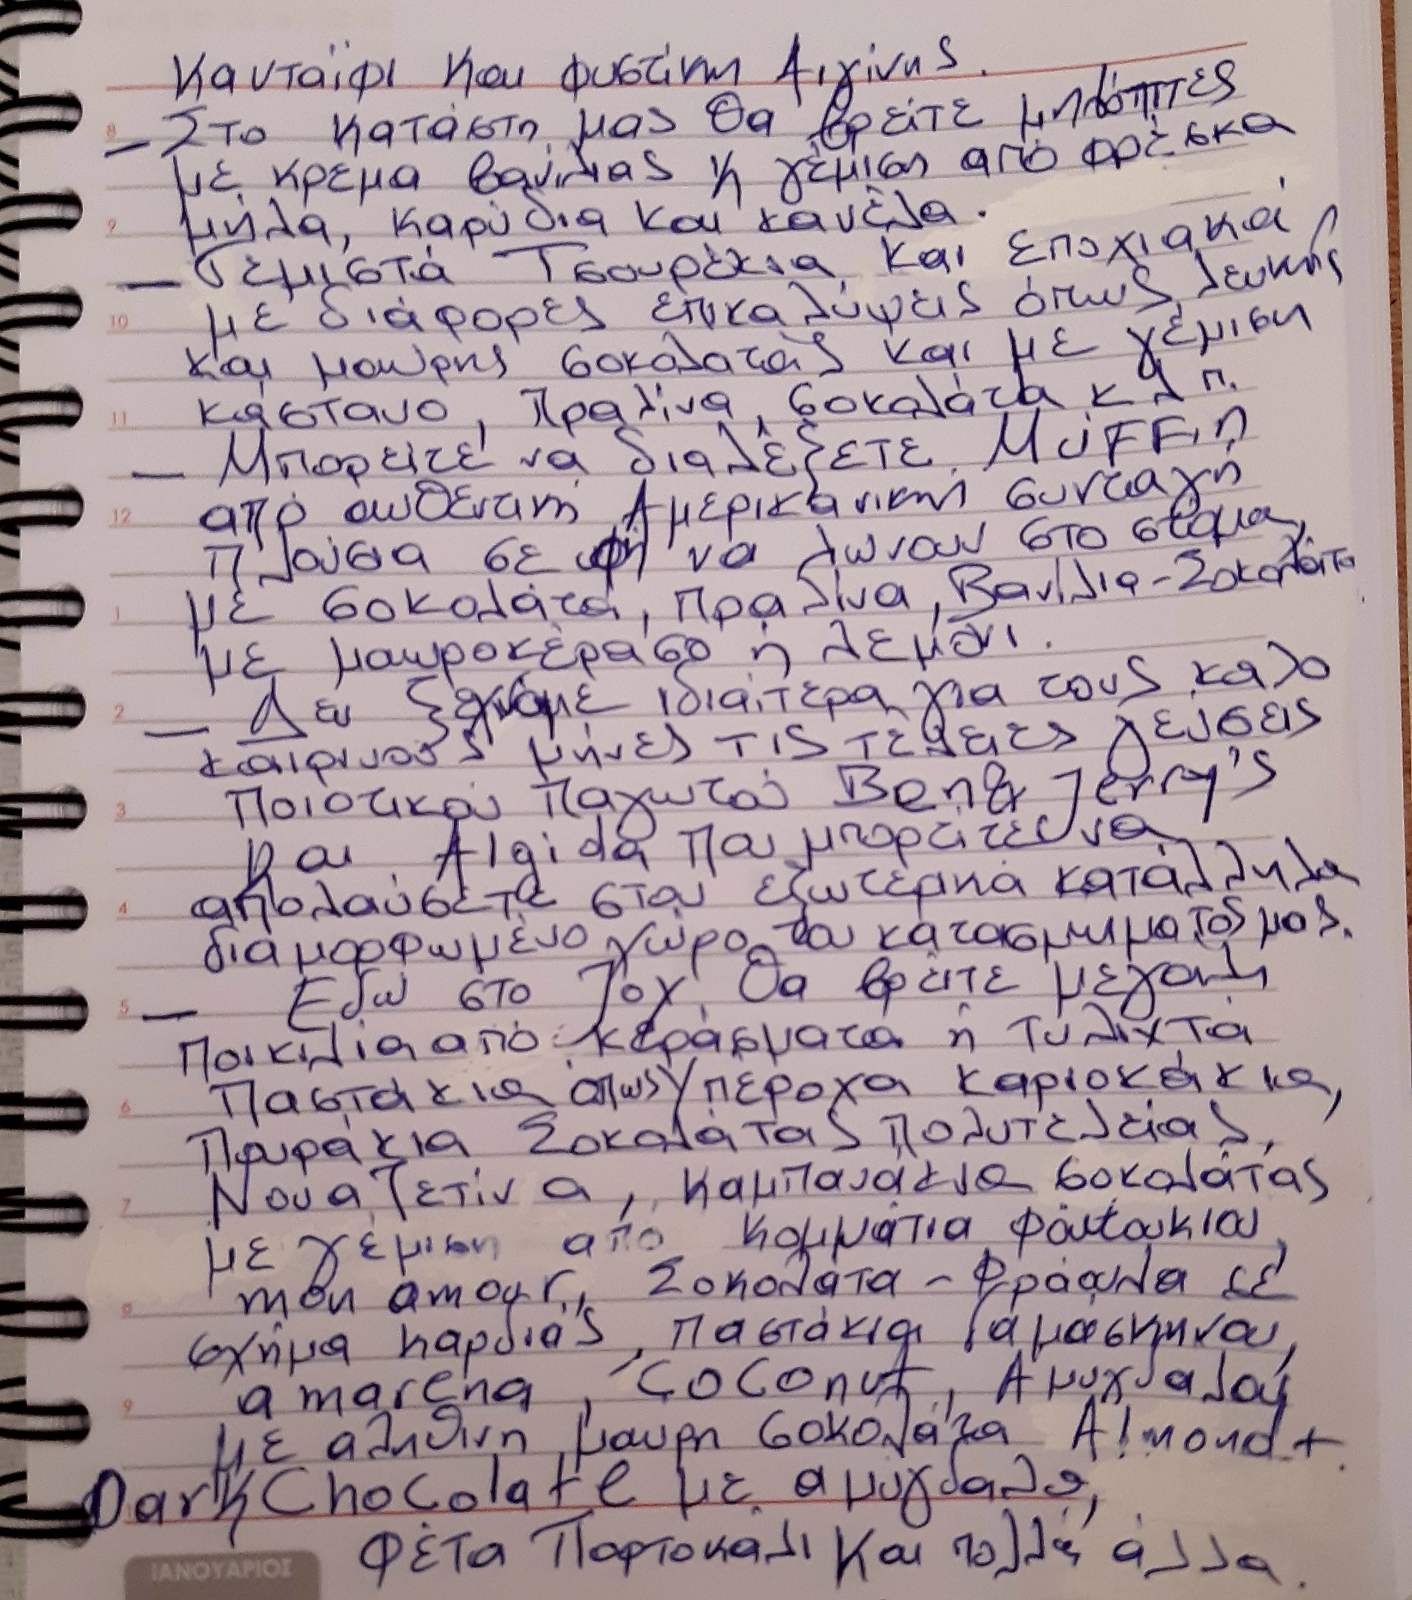 Κανταϊφι και φυστίκι Αιγίνης.
8
– Στο κατάστη μας θα βρείτε μηλόπιτες
με κρεμα βανιλιας ή γέμιση από φρέσκα
9
μήλα, καρύδια και κανέλα.
– Γεμιστά Τσουρέκια και εποχιακά
10
με διάφορες επικαλύψεις όπως λευκής
και μαυρης σοκολατας και με γέμιση
11
κάστανο, πραλίνα, σοκολάτα κλπ.
– Μπορειτε να διαλέξετε Muffin
12
από αυθεντική Αμερικάνικη συνταγή
πλούσια σε να λιώνουν στο στόμα,
1
με σοκολάτα, πραλίνα, Βανίλια-Σοκολάτα
με μαυροκέρασο ή λεμόνι.
2
– Δεν ξεχνάμε ιδιαίτερα για τους καλο
καιρινούς μήνες τις τέλειες γεύσεις
3
Ποιοτικού Παγωτού Ben & Jerry's
και Algida που μπορείτε να
4
απολαύσετε στον εξωτερικά κατάλληλα
διαμορφωμένο χώρο του καταστήματός μας.
5
– Εδώ στο Joy θα βρείτε μεγαλη
ποικιλία από κεράσματα ή τυλιχτά
6
Παστάκια όπως Υπέροχα καριοκάκια,
Πουράκια Σοκολάτας πολυτελείας,
7
Νουαζετίνα, καμπανάκια σοκολάτας
με γέμιση από κομμάτια φουντουκιου,
8
mon amour, Σοκολάτα – Φράουλα σε
σχήμα καρδιάς, παστάκια δαμασκηνου,
9
amarena, Coconut, Αμυγδαλου
με αληθινη μαυρη σοκολάτα Almond +
Dark Chocolate με αμυγδαλο,
φέτα Πορτοκάλι και πολλά άλλα.
ΙΑΝΟΥΑΡΙΟΣ